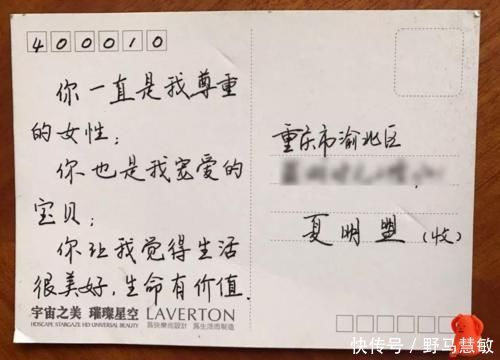 400010
你一直是我尊重
的女性；
你也是我宠爱的
宝贝；
你让我觉得生活
很美好，生命有价值.
重庆市渝北区
夏明盟（收）
宇宙之美 璀璨星空 LAVERTON
HDSCAPE STARGAZE HD UNIVERSAL BEAUTY 爲快樂而設計 爲生活而制造
快传号 / 野马慧敏